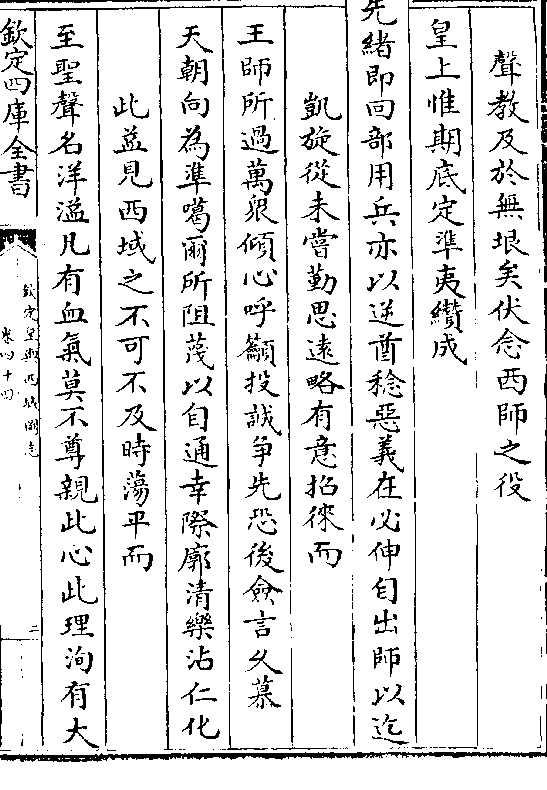 聲教及於無垠矣伏念西師之役
皇上惟期底定準夷纘成
先緒即回部用兵亦以逆酋稔惡義在必伸自出師以迄
凱旋從未嘗勤思遠略有意招徠而
王師所過萬衆傾心呼籲投誠争先恐後僉言久慕
天朝向為準噶爾所阻蔑以自通幸際廓清樂沾仁化
此益見西域之不可不及時蕩平而
至聖聲名洋溢凡有血氣莫不尊親此心此理洵有大
欽定四庫全書
欽定皇輿西域圖志
卷四十四
二